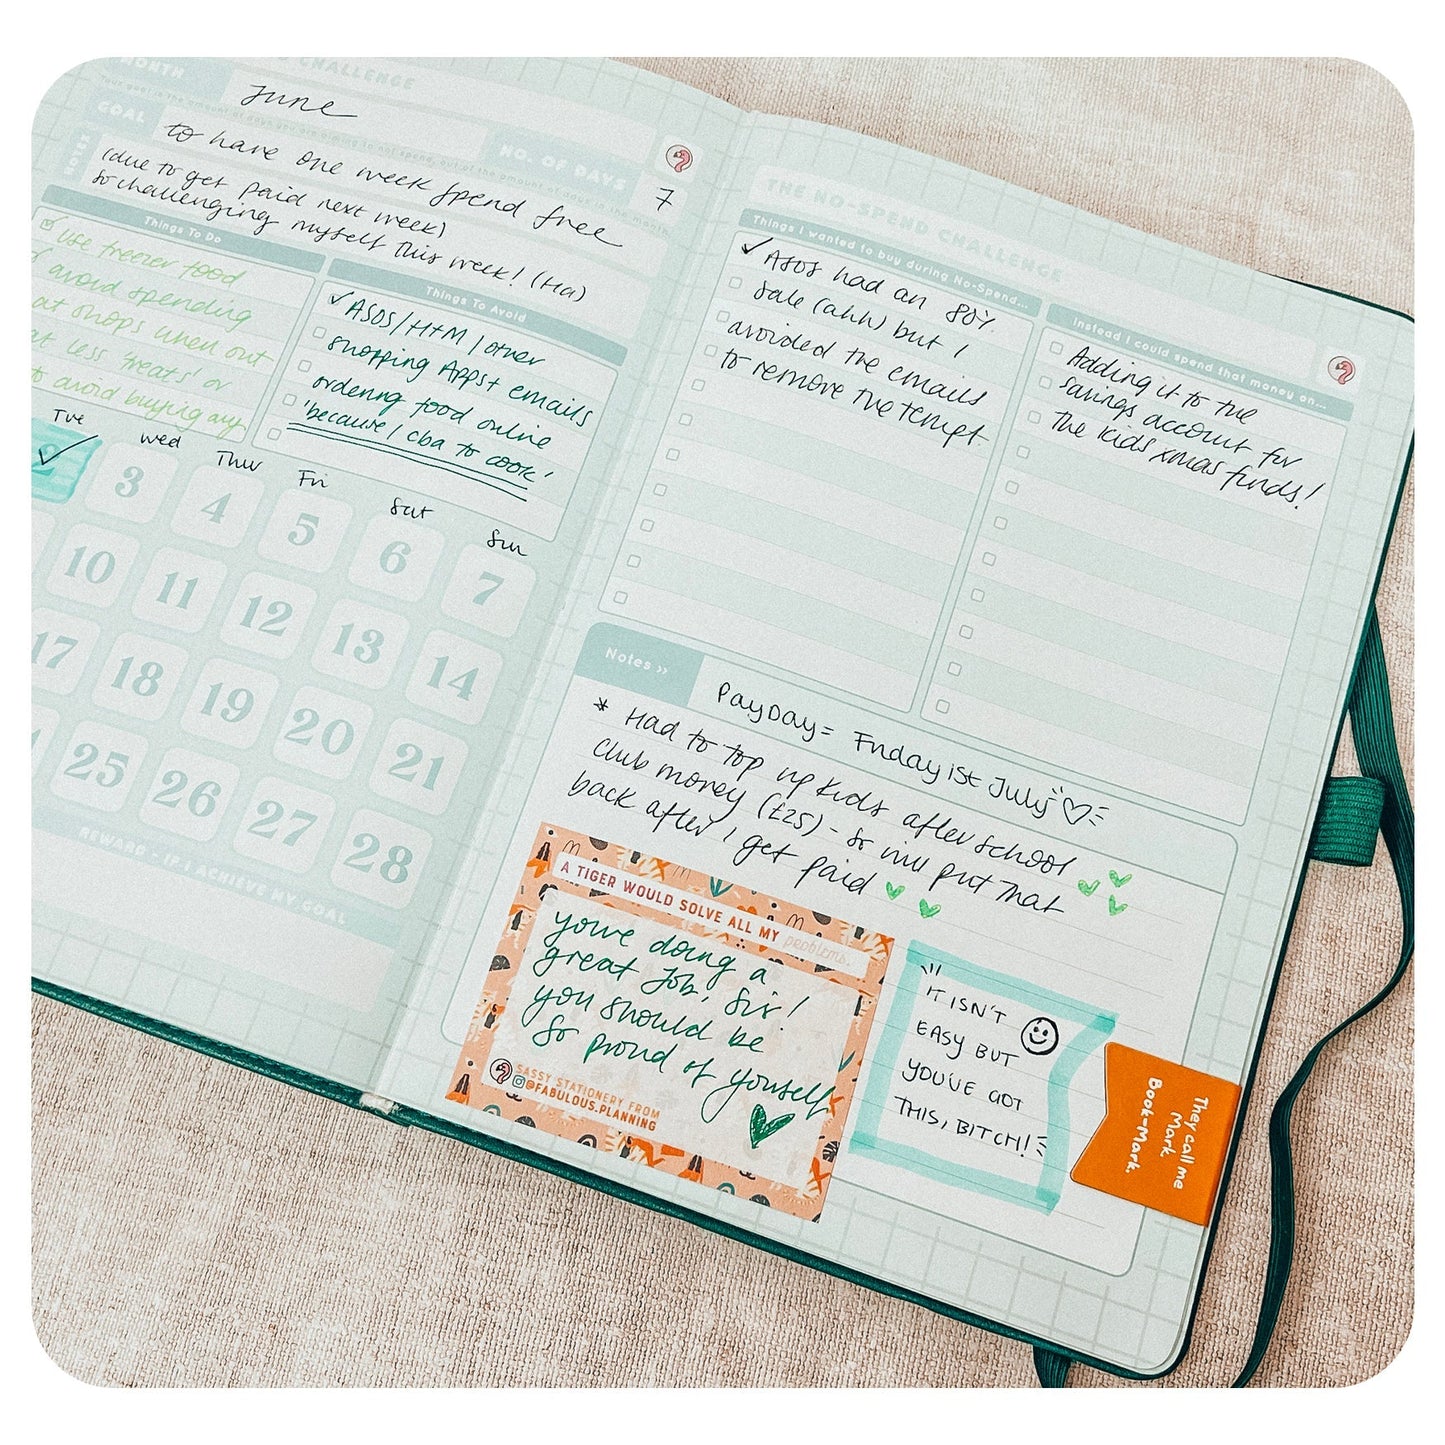 MONTH
CHALLENGE
June
GOAL
NO. OF DAYS
7
NOTES
to have one week spend free
(due to get paid next week)
so challenging myself this week! (Ha)
Things To Do
Use freezer food
avoid spending
at shops when out
less 'treats' or
to avoid buying any
Things To Avoid
ASOS/H+M/other
shopping Apps+emails
ordering food online
'because I cba to cook'
Tue Wed Thur Fri Sat Sun
2 3 4 5 6 7
10 11 12 13 14
17 18 19 20 21
25 26 27 28
REWARD IF I ACHIEVE MY GOAL
THE NO-SPEND CHALLENGE
Things I wanted to buy during No-Spend...
ASOS had an 80%
sale (ahh) but I
avoided the emails
to remove the tempt
Instead I could spend that money on...
Adding it to the
savings account for
the kids xmas funds!
Notes »
PayDay = Friday 1st July
* Had to top up kids after school
club money (£25) - so will put that
back after I get paid
A TIGER WOULD SOLVE ALL MY problems.
you're doing a
great job, sir!
you should be
so proud of yourself
SASSY STATIONERY FROM
@FABULOUS.PLANNING
IT ISN'T
EASY BUT
YOU'VE GOT
THIS, BITCH!
They call me
Mark.
Book-Mark.